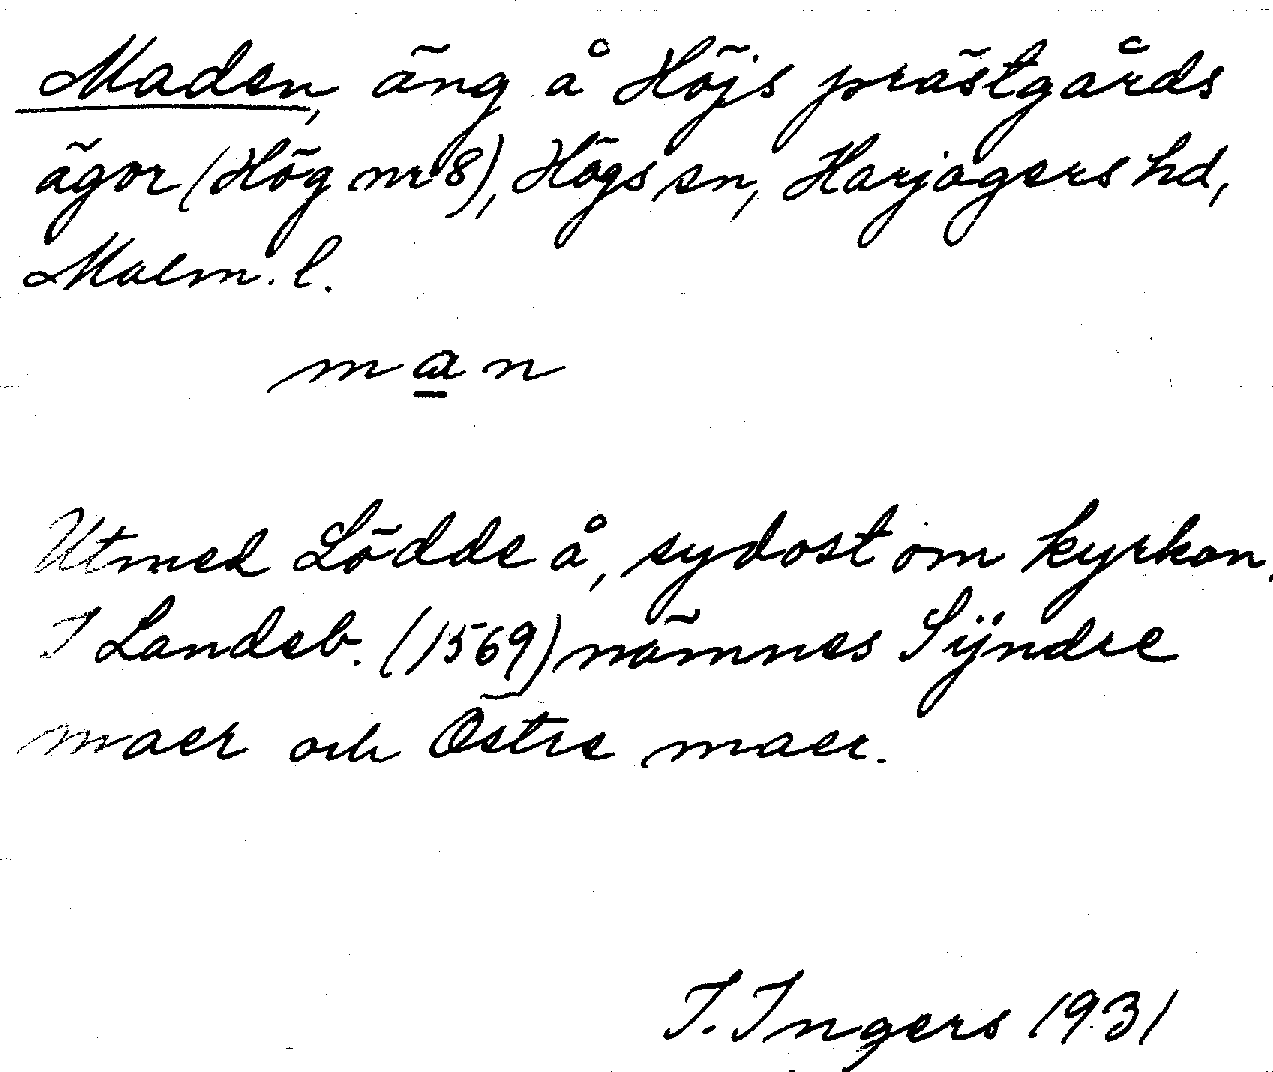 Maden, äng å Höjs prästgårds
ägor (Hög nr 8), Högs sn, Harjagers hd,
Malm. l.
man
Utmed Lödde å, sydost om kyrkan.
I Landeb. (1569) nämnes Sÿndre
maer och Östre maer.
I. Ingers 1931